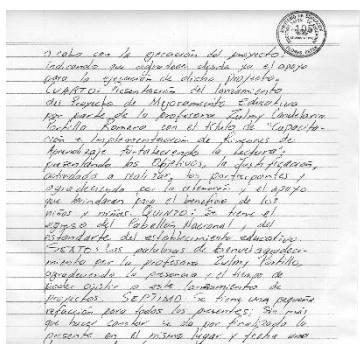 a cabo con la ejecución del proyecto
indicando que agradece desde ya el apoyo
para la ejecución de dicho proyecto.
CUARTO: Presentación del lanzamiento
del Proyecto de Mejoramiento Educativo
por parte de la profesora Zulmy Candelaria
Portillo Romero con el título de "Capacita-
ción e Implementación de Rincones de
Aprendizaje fortaleciendo la lectura";
presentando los Objetivos, la Justificación,
actividad a realizar, los participantes y
agradeciendo por la atención y el apoyo
que brindaron para el beneficio de los
niños y niñas. QUINTO: Se tiene el
egreso del Pabellón Nacional y del
estandarte del establecimiento educativo.
SEXTO: Las palabras de bienvenida
miento por la profesora Zulmy Portillo,
agradeciendo la presencia y el tiempo de
poder asistir a este lanzamiento de
proyectos. SEPTIMO: Se tiene una pequeña
refacción para todos los presentes; Sin más
que hacer constar se da por finalizada la
presente en el mismo lugar y fecha una